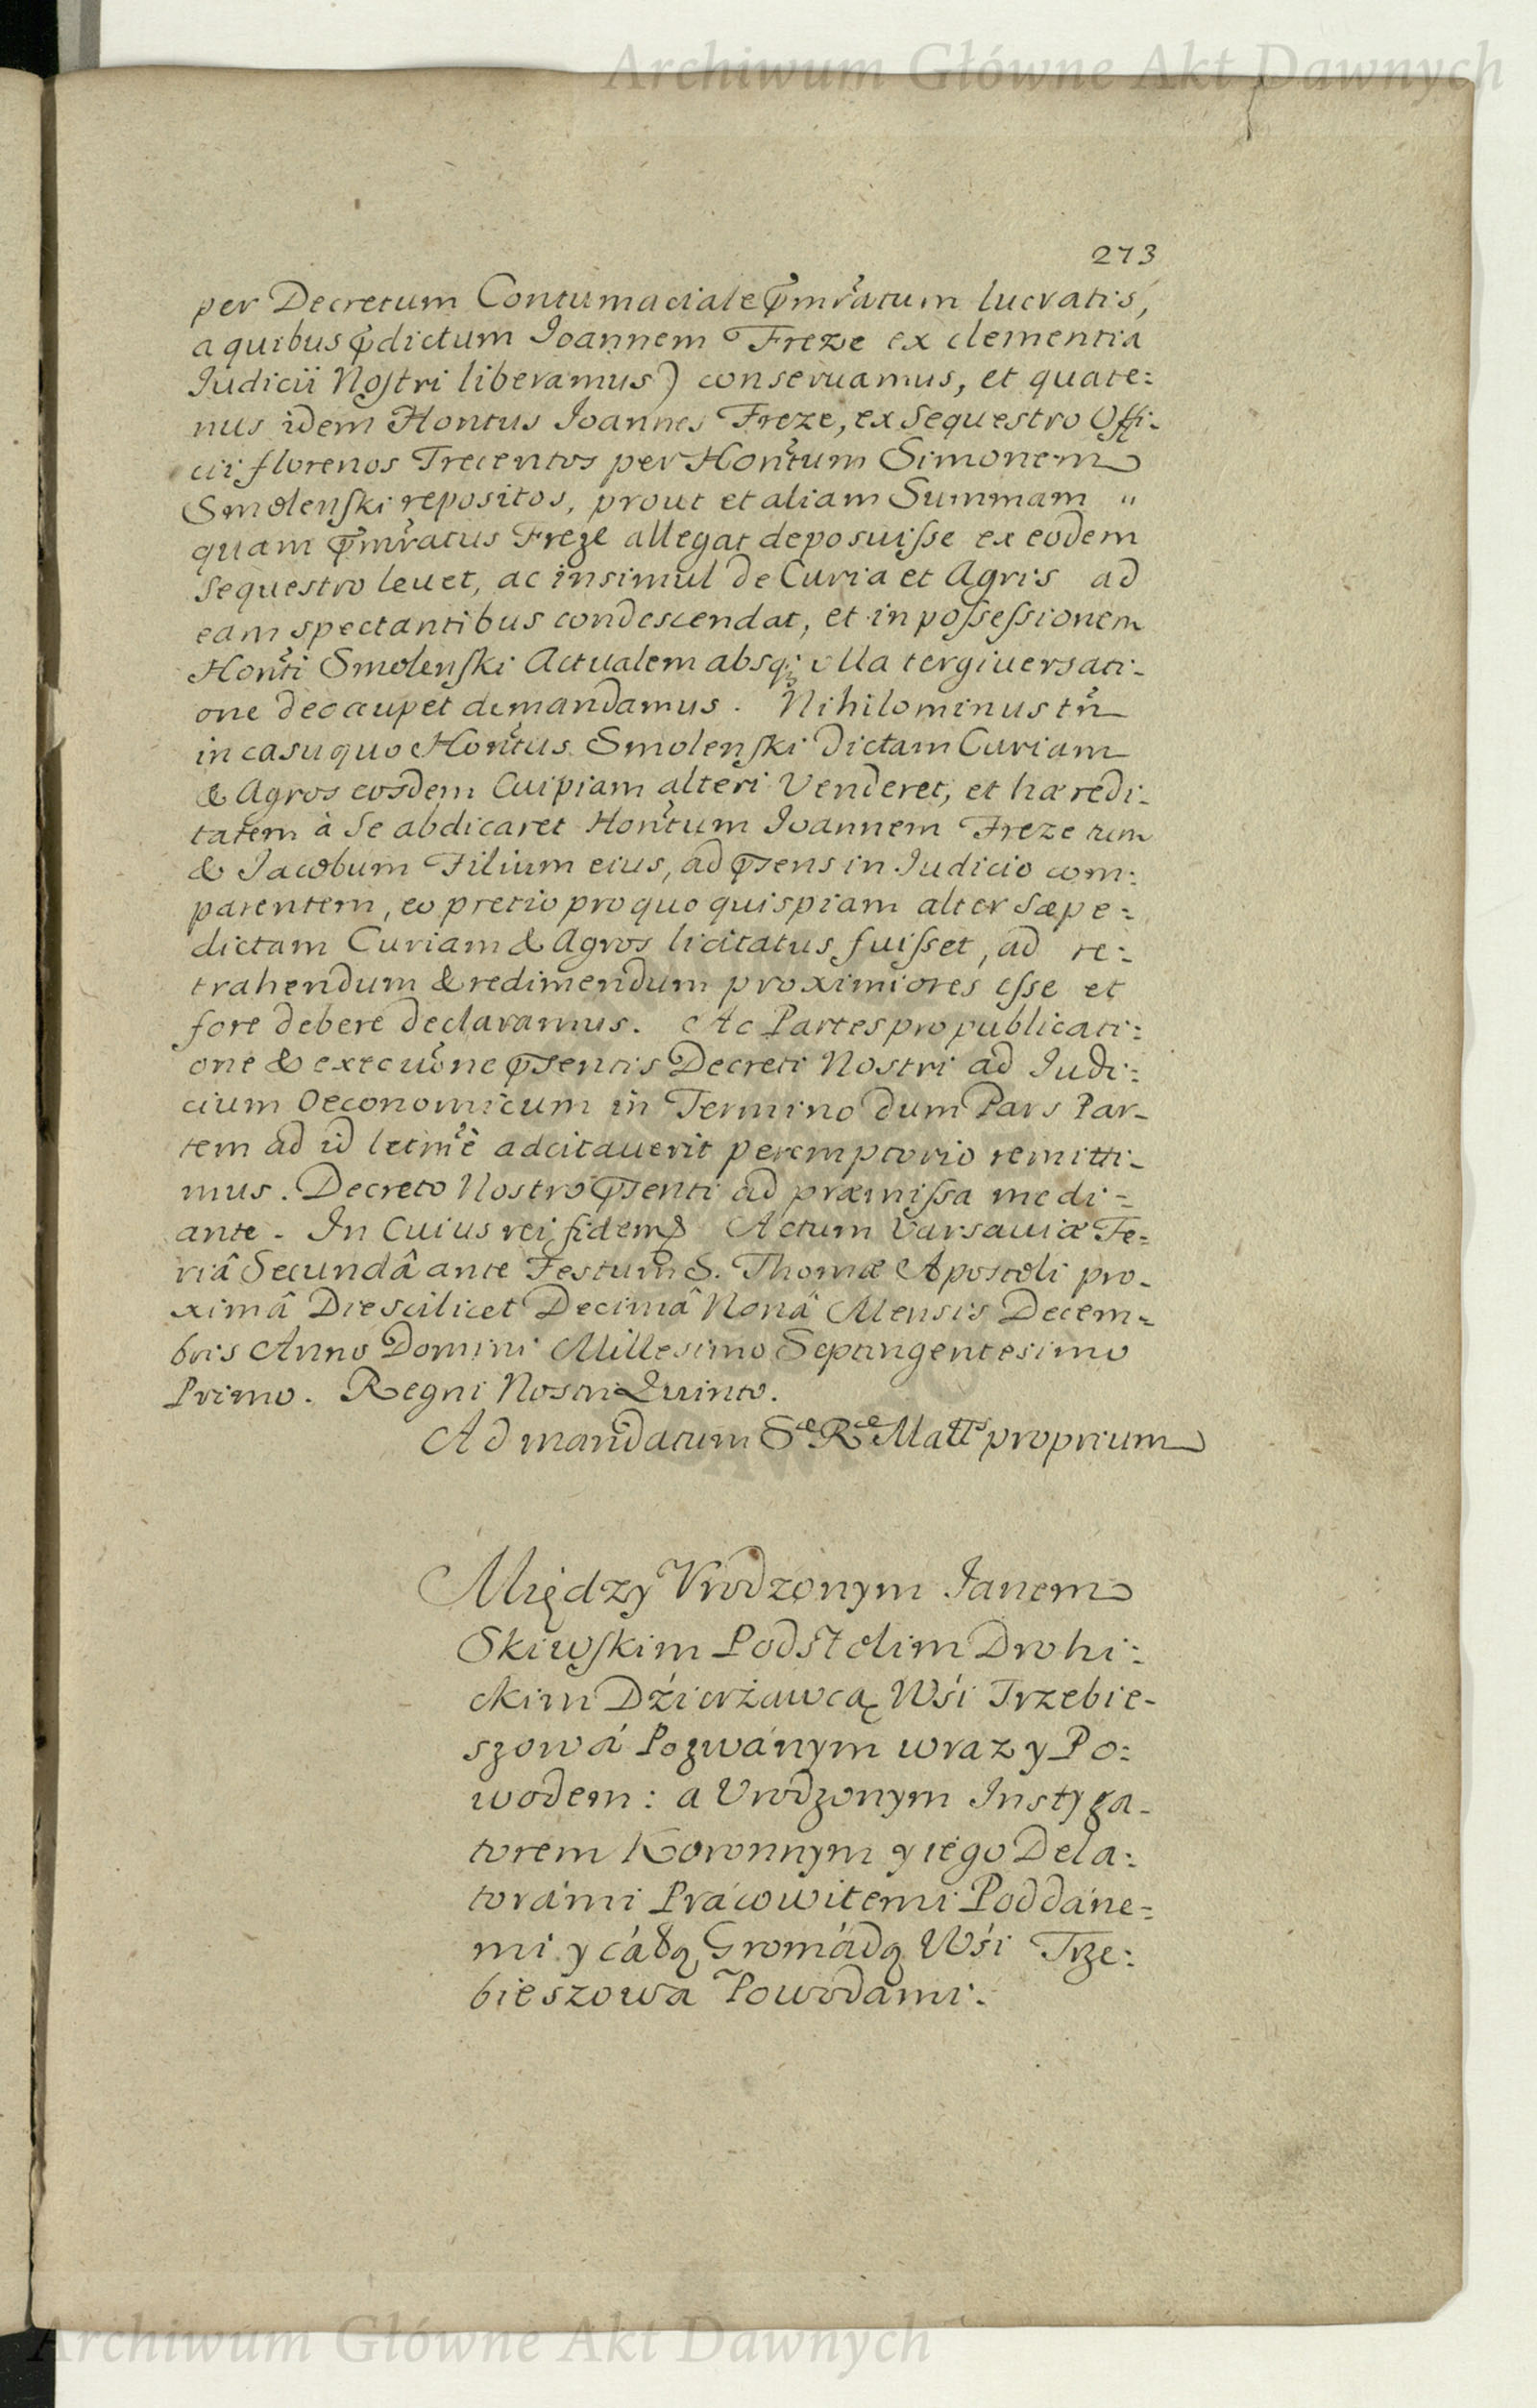 Archiwum Główne Akt Dawnych
273
per Decretum Contumaciale p̃mr̃atum lucratis,
a quibus p̃dictum Ioannem Freze ex clementia
Iudicii Noſtri liberamus) conseruamus, et quate:
nus idem Hontus Ioannes Freze, ex Sequestro Offi-
cii florenos Trecentos per Hon̄tum Simonem
Smolenſki repositos, prout et aliam Summam "
quam p̃mr̃atus Freze allegat deposuiſse ex eodem
Sequestro leuet, ac insimul de Curia et Agris ad
eam spectantibus condescendat, et in poſseſsionem
Hon̄ti Smolenſki Actualem absq; ulla tergiuersati-
one deoccupet demandamus. Nihilominus tn̄
in casu quo Hon̄tus Smolenſki dictam Curiam
& Agros eosdem Cuipiam alteri Venderet, et hæredi-
tatem à Se abdicaret Hon̄tum Ioannem Freze tum
& Iacobum Filium eius, ad p̃sens in Iudicio com:
parentem, eo pretio pro quo quispiam alter Sæpe=
dictam Curiam & Agros licitatus fuiſset, ad re:
trahendum & redimendum proximiores eſse et
fore debere declaramus. Ac Partes pro publicati:
one & execuõne p̃sentis Decreti Nostri ad Iudi:
cium Oeconomicum in Termino dum Pars Par-
tem ad id letm̃è adcitauerit peremptorio remitti-
mus. Decreto Nostro p̃senti ad præmiſsa medi=
ante. In Cuius rei fidem &c Actum Varsauiæ Fe=
riâ Secundâ ante Festum S. Thomæ Apostoli pro-
ximâ Die scilicet Decimâ Nonâ Mensis Decem=
bris Anno Domini Millesimo Septingentesimo
Primo. Regni Nostri Quinto.
Ad mandatum Sæ Ræ Mattis proprium
Między Vrodzonym Ianem
Skiwſkim Podstolim Drohi:
ckim Dźierżawcą Wśi Trzebie-
szowá Pozwánym wraz y Po:
wodem: a Vrodzonym Instyga-
torem Koronnym y iego Dela:
torámi Prácowitemi Poddáne=
mi y cáłą Gromádą Wśi Trze:
bieszowa Powodami.
Archiwum Główne Akt Dawnych